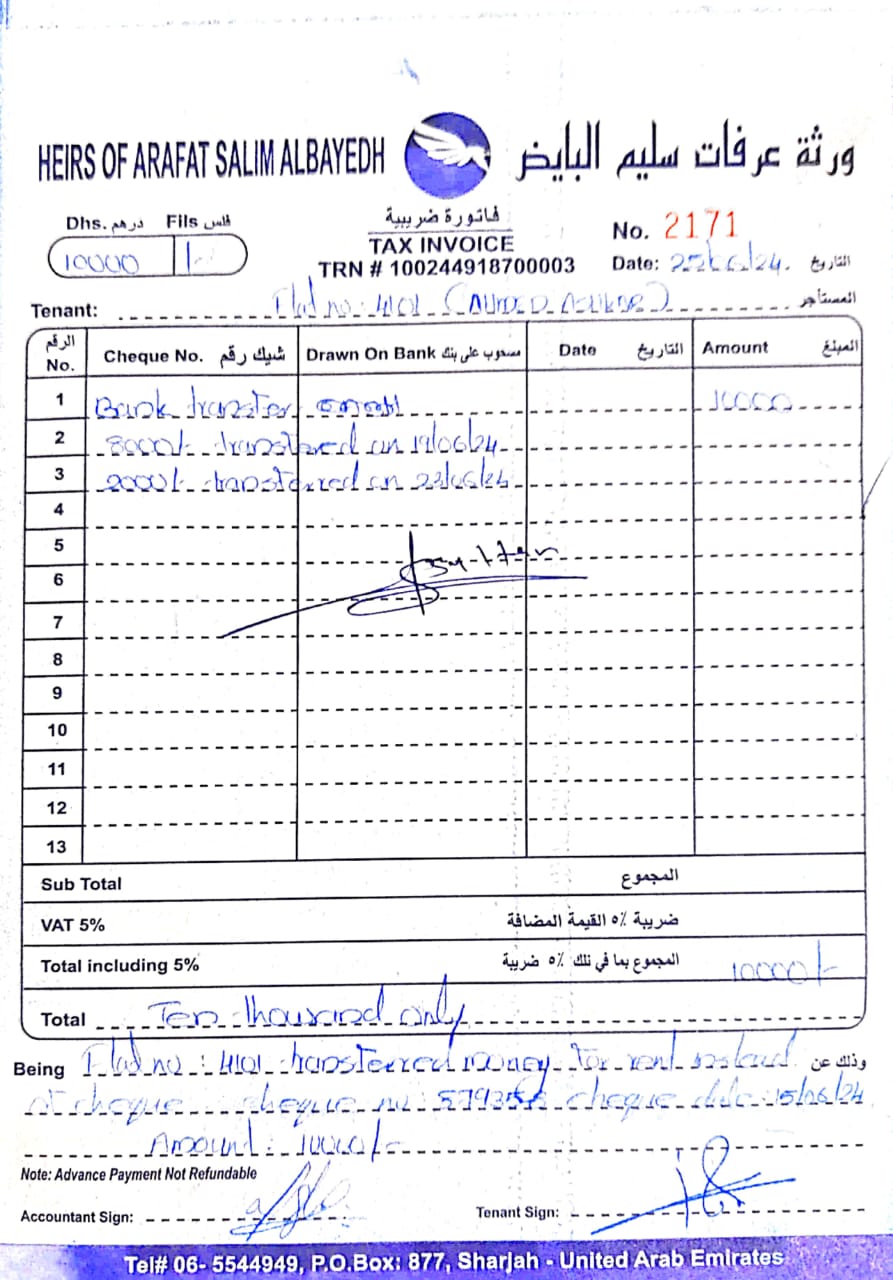 HEIRS OF ARAFAT SALIM ALBAYEDH ورثة عرفات سليم البايض
Dhs. درهم Fils فلس
10000
فاتورة ضريبية
TAX INVOICE
TRN # 100244918700003
No. 2171
Date: /24. التاريخ
Tenant: Flat no: 4101 المستأجر
الرقم No. Cheque No. شيك رقم Drawn On Bank مسحوب على بنك Date التاريخ Amount المبلغ
1 Bank transfer 10000
2 8000/- transferred on /06/24
3 2000/- transferred on /06/24
4
5
6
7
8
9
10
11
12
13
Sub Total المجموع
VAT 5% ضريبة ٥% القيمة المضافة
Total including 5% المجموع بما في ذلك ٥% ضريبة 10000/-
Total Ten thousand only
Being Flat no: 4101 transferred money for rent instead وذلك عن
of cheque cheque no: cheque date: 15/06/24
Amount: 10000/-
Note: Advance Payment Not Refundable
Accountant Sign: Tenant Sign:
Tel# 06- 5544949, P.O.Box: 877, Sharjah - United Arab Emirates